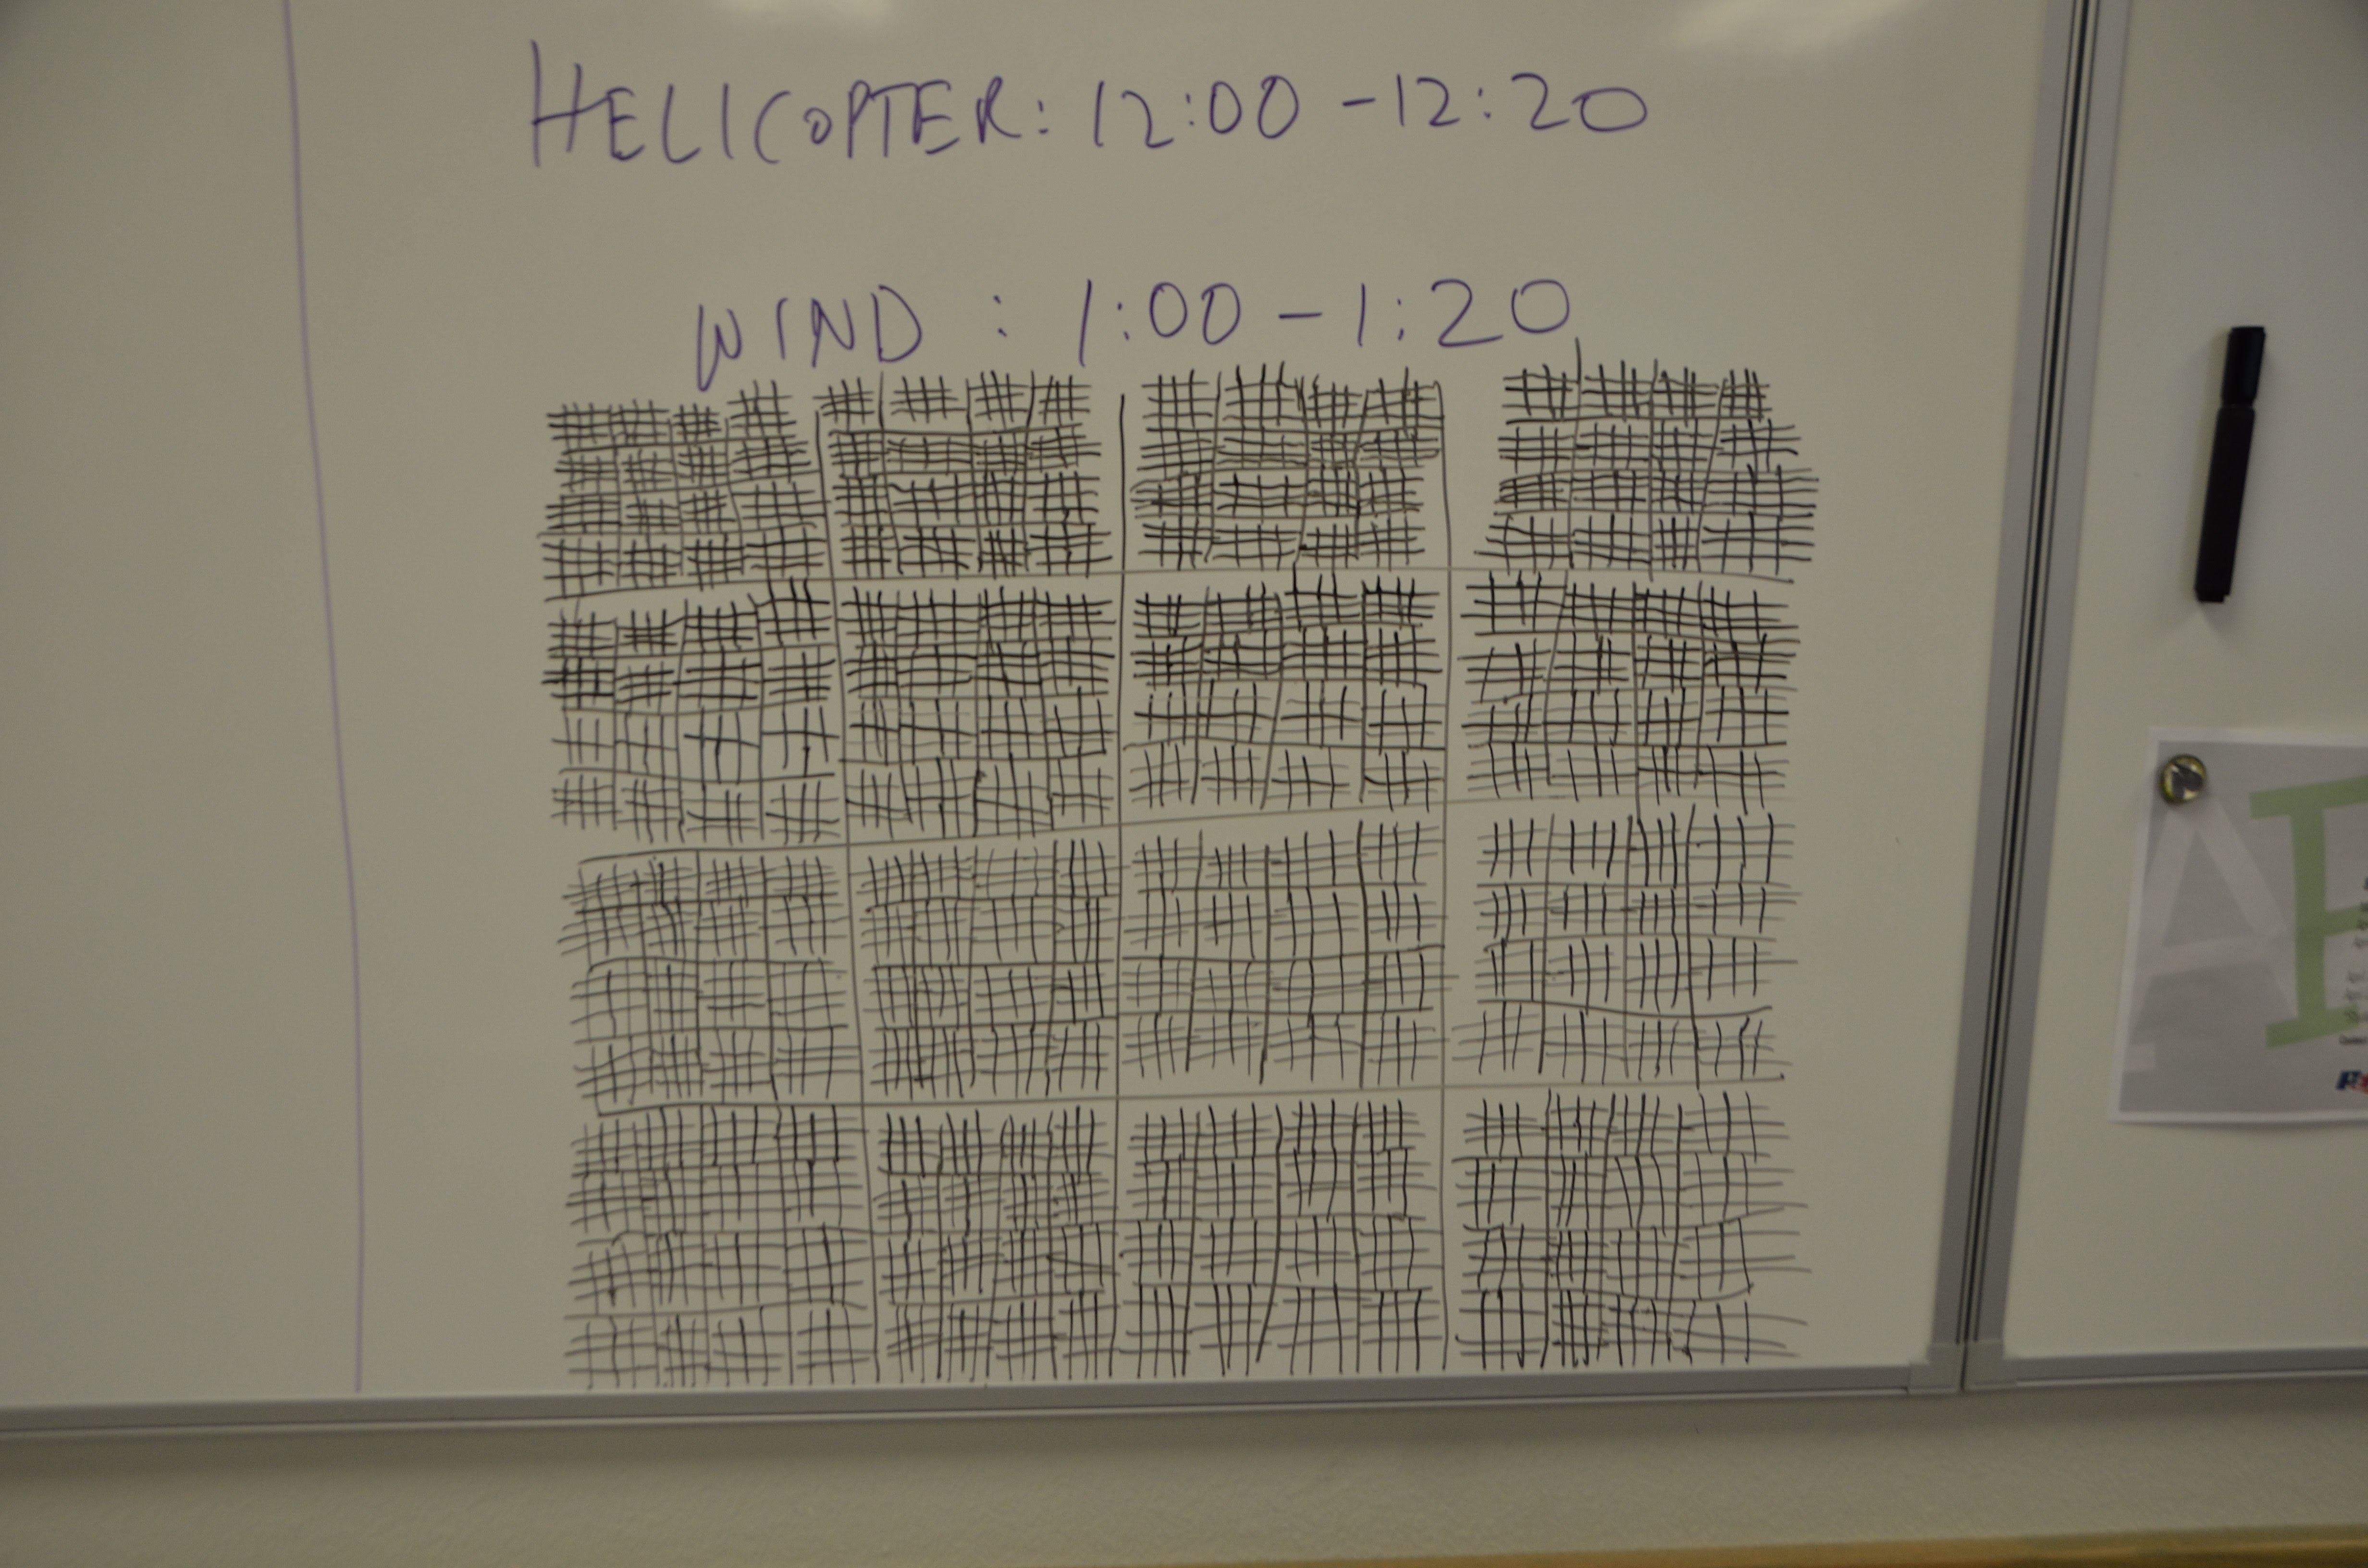 HELICOPTER: 12:00 - 12:20
WIND : 1:00 - 1:20